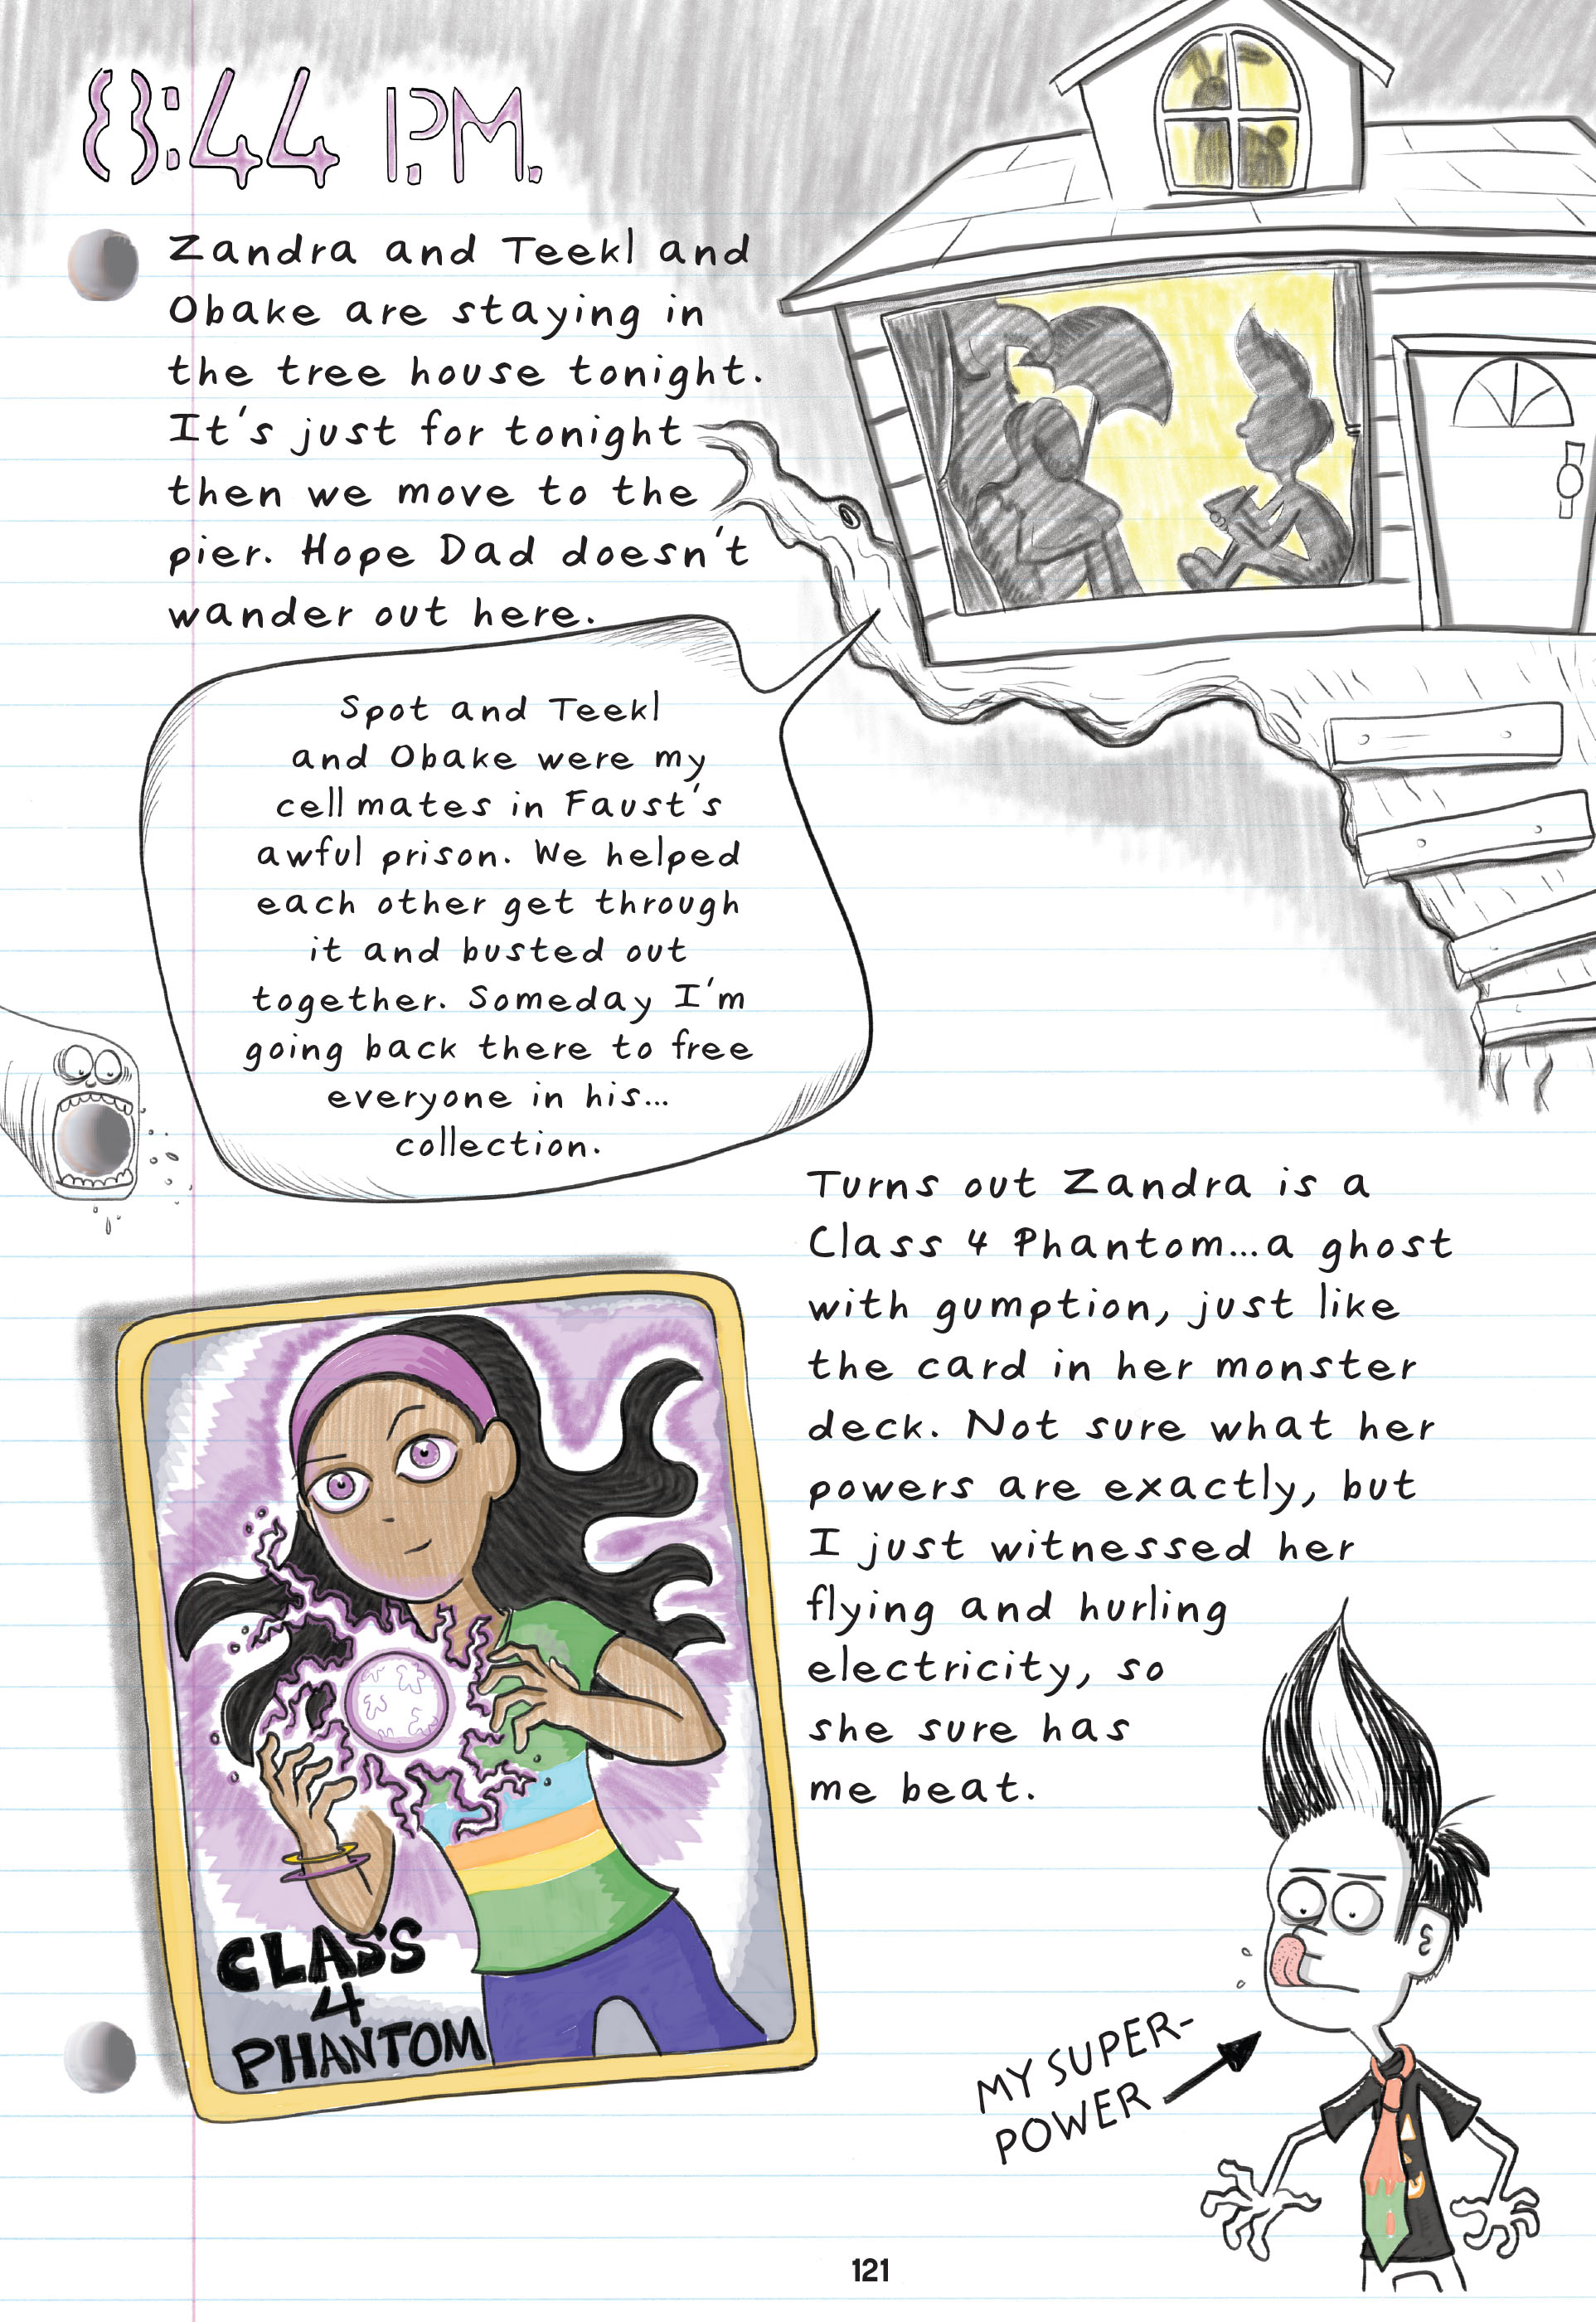 8:44 P.M.
Zandra and Teekl and
Obake are staying in
the tree house tonight.
It's just for tonight
then we move to the
pier. Hope Dad doesn't
wander out here.
Spot and Teekl
and Obake were my
cell mates in Faust's
awful prison. We helped
each other get through
it and busted out
together. Someday I'm
going back there to free
everyone in his...
collection.
Turns out Zandra is a
Class 4 Phantom...a ghost
with gumption, just like
the card in her monster
deck. Not sure what her
powers are exactly, but
I just witnessed her
flying and hurling
electricity, so
she sure has
me beat.
CLASS
4
PHANTOM
MY SUPER-
POWER
121